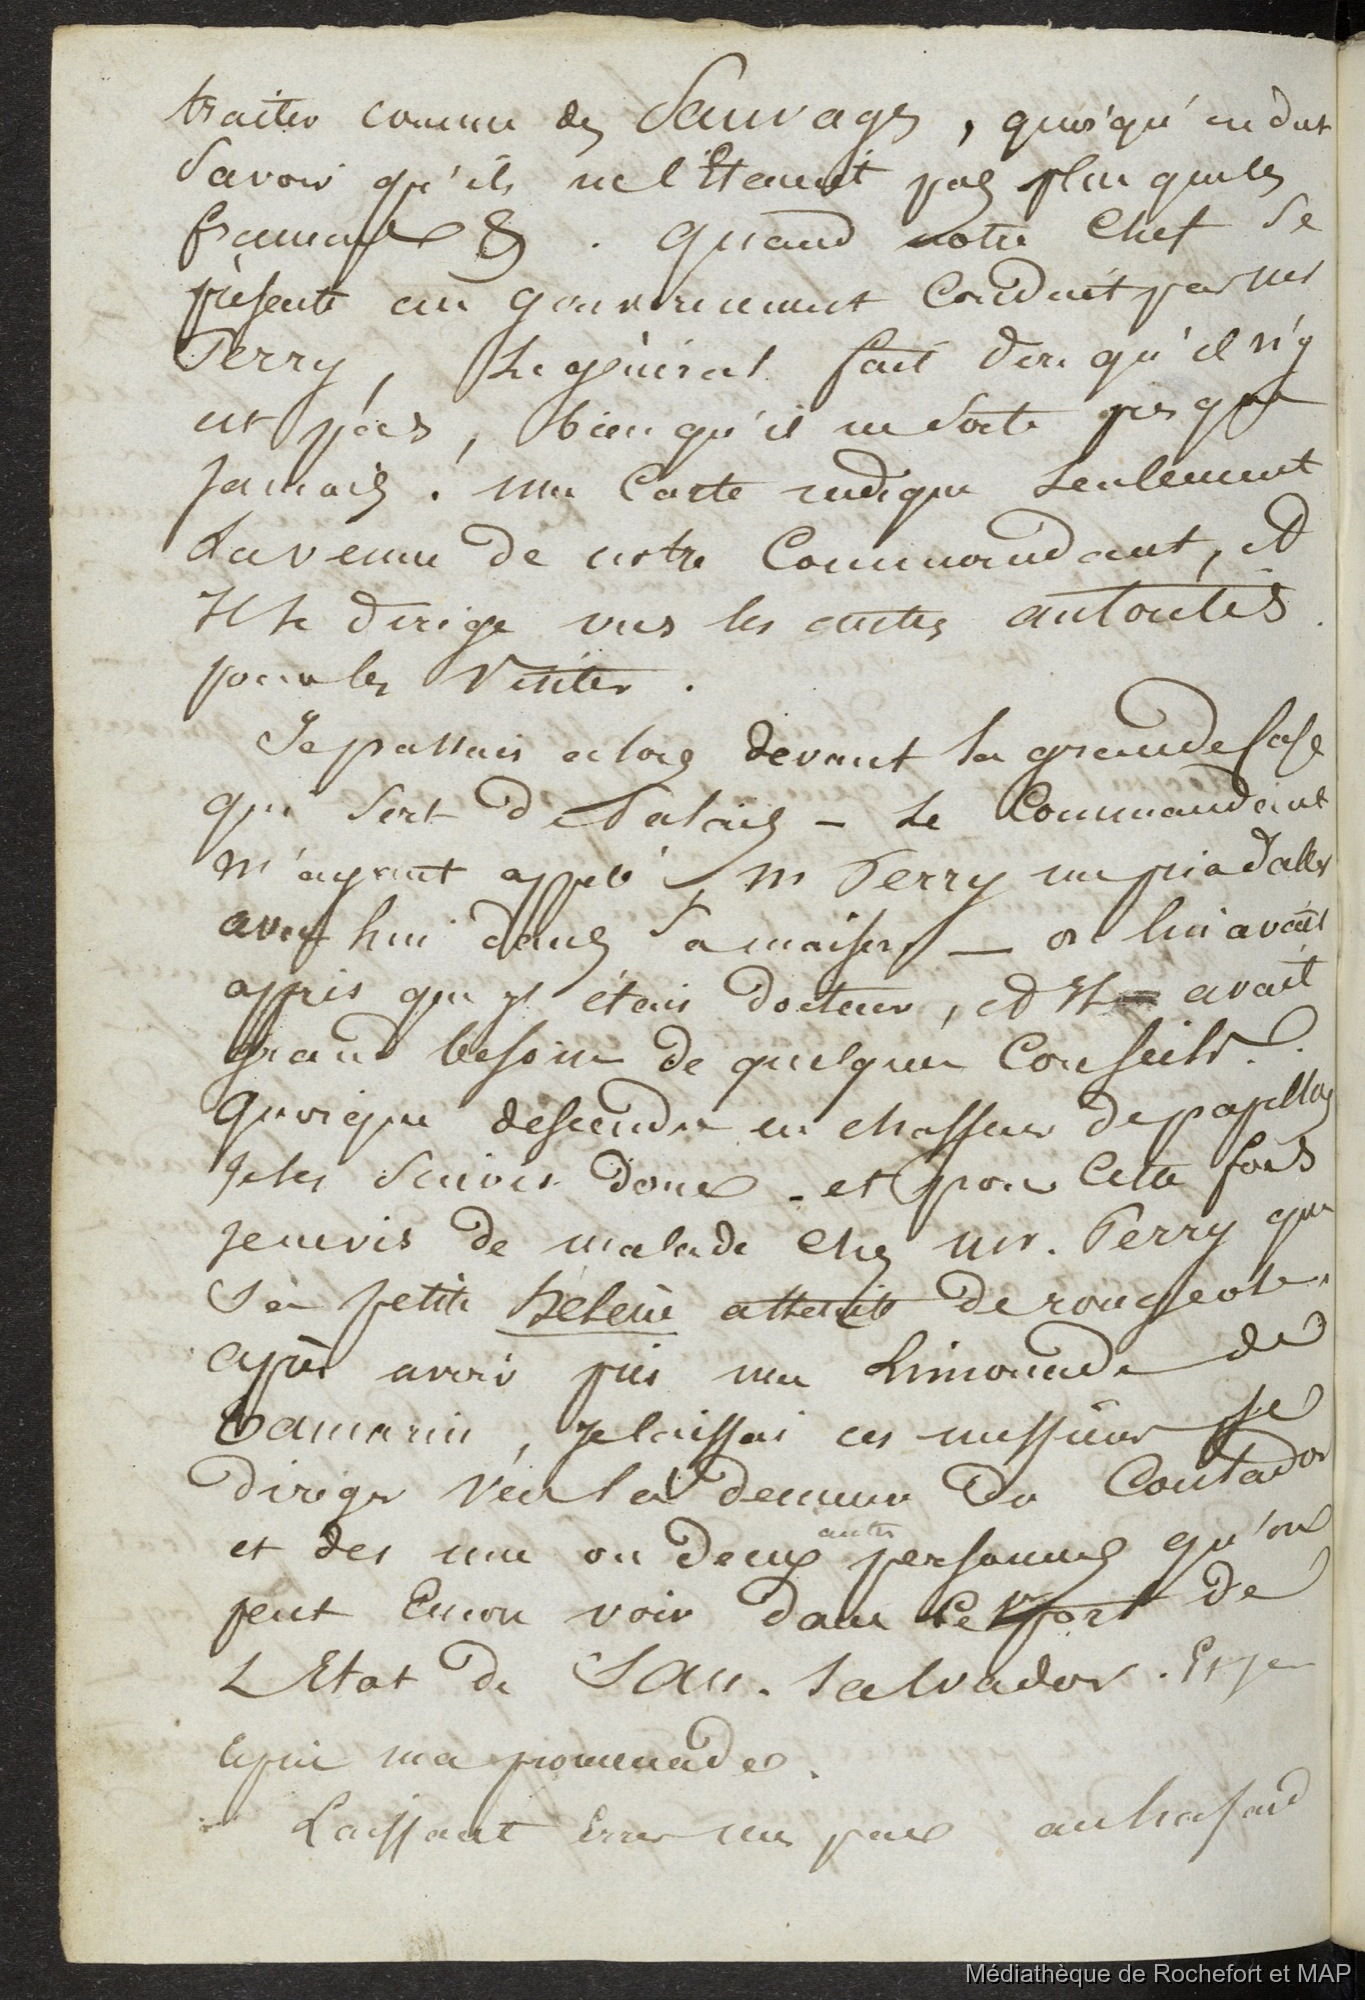 traiter comme des Sauvages, quoiqu'on dut
Savoir qu'ils ne l'Etaient pas plus que les
français &. quand notre Chef Se
présente au gouvernement Conduit par mr
Perry, Le général fait dire qu'il n'y
est pas, bien qu'il ne Sorte presque
Jamais. une Carte indique Seulement
La venue de notre Commandant, et
Il Se dirige vers les autres autorités
pour les Visiter.
Je passais alors devant la grande Case
qui Sert de Palais - Le Commandant
m'ayant appelé, mr Perry me pria d'aller
avec lui dans Sa maison — on lui avait
appris que j'étais docteur, et Il avait
grand besoin de quelques Conseils.
quoique descendu en chasseur de papillons
Je les Suivis donc - et pour Cette fois
Je ne vis de malade chez mr. Perry que
Sa petite heleine atteinte de rougeole.
après avoir pris une Limonade de
tamarin, Je laissai ces messieurs se
diriger vers la demeure Du Contador
et des une ou deux autres personnes qu'on
peut Encore voir dans Le port de
L'Etat de San-Salvador. Et je
repris ma promenade.
Laissant Errer mes pas au hasard
Médiathèque de Rochefort et MAP